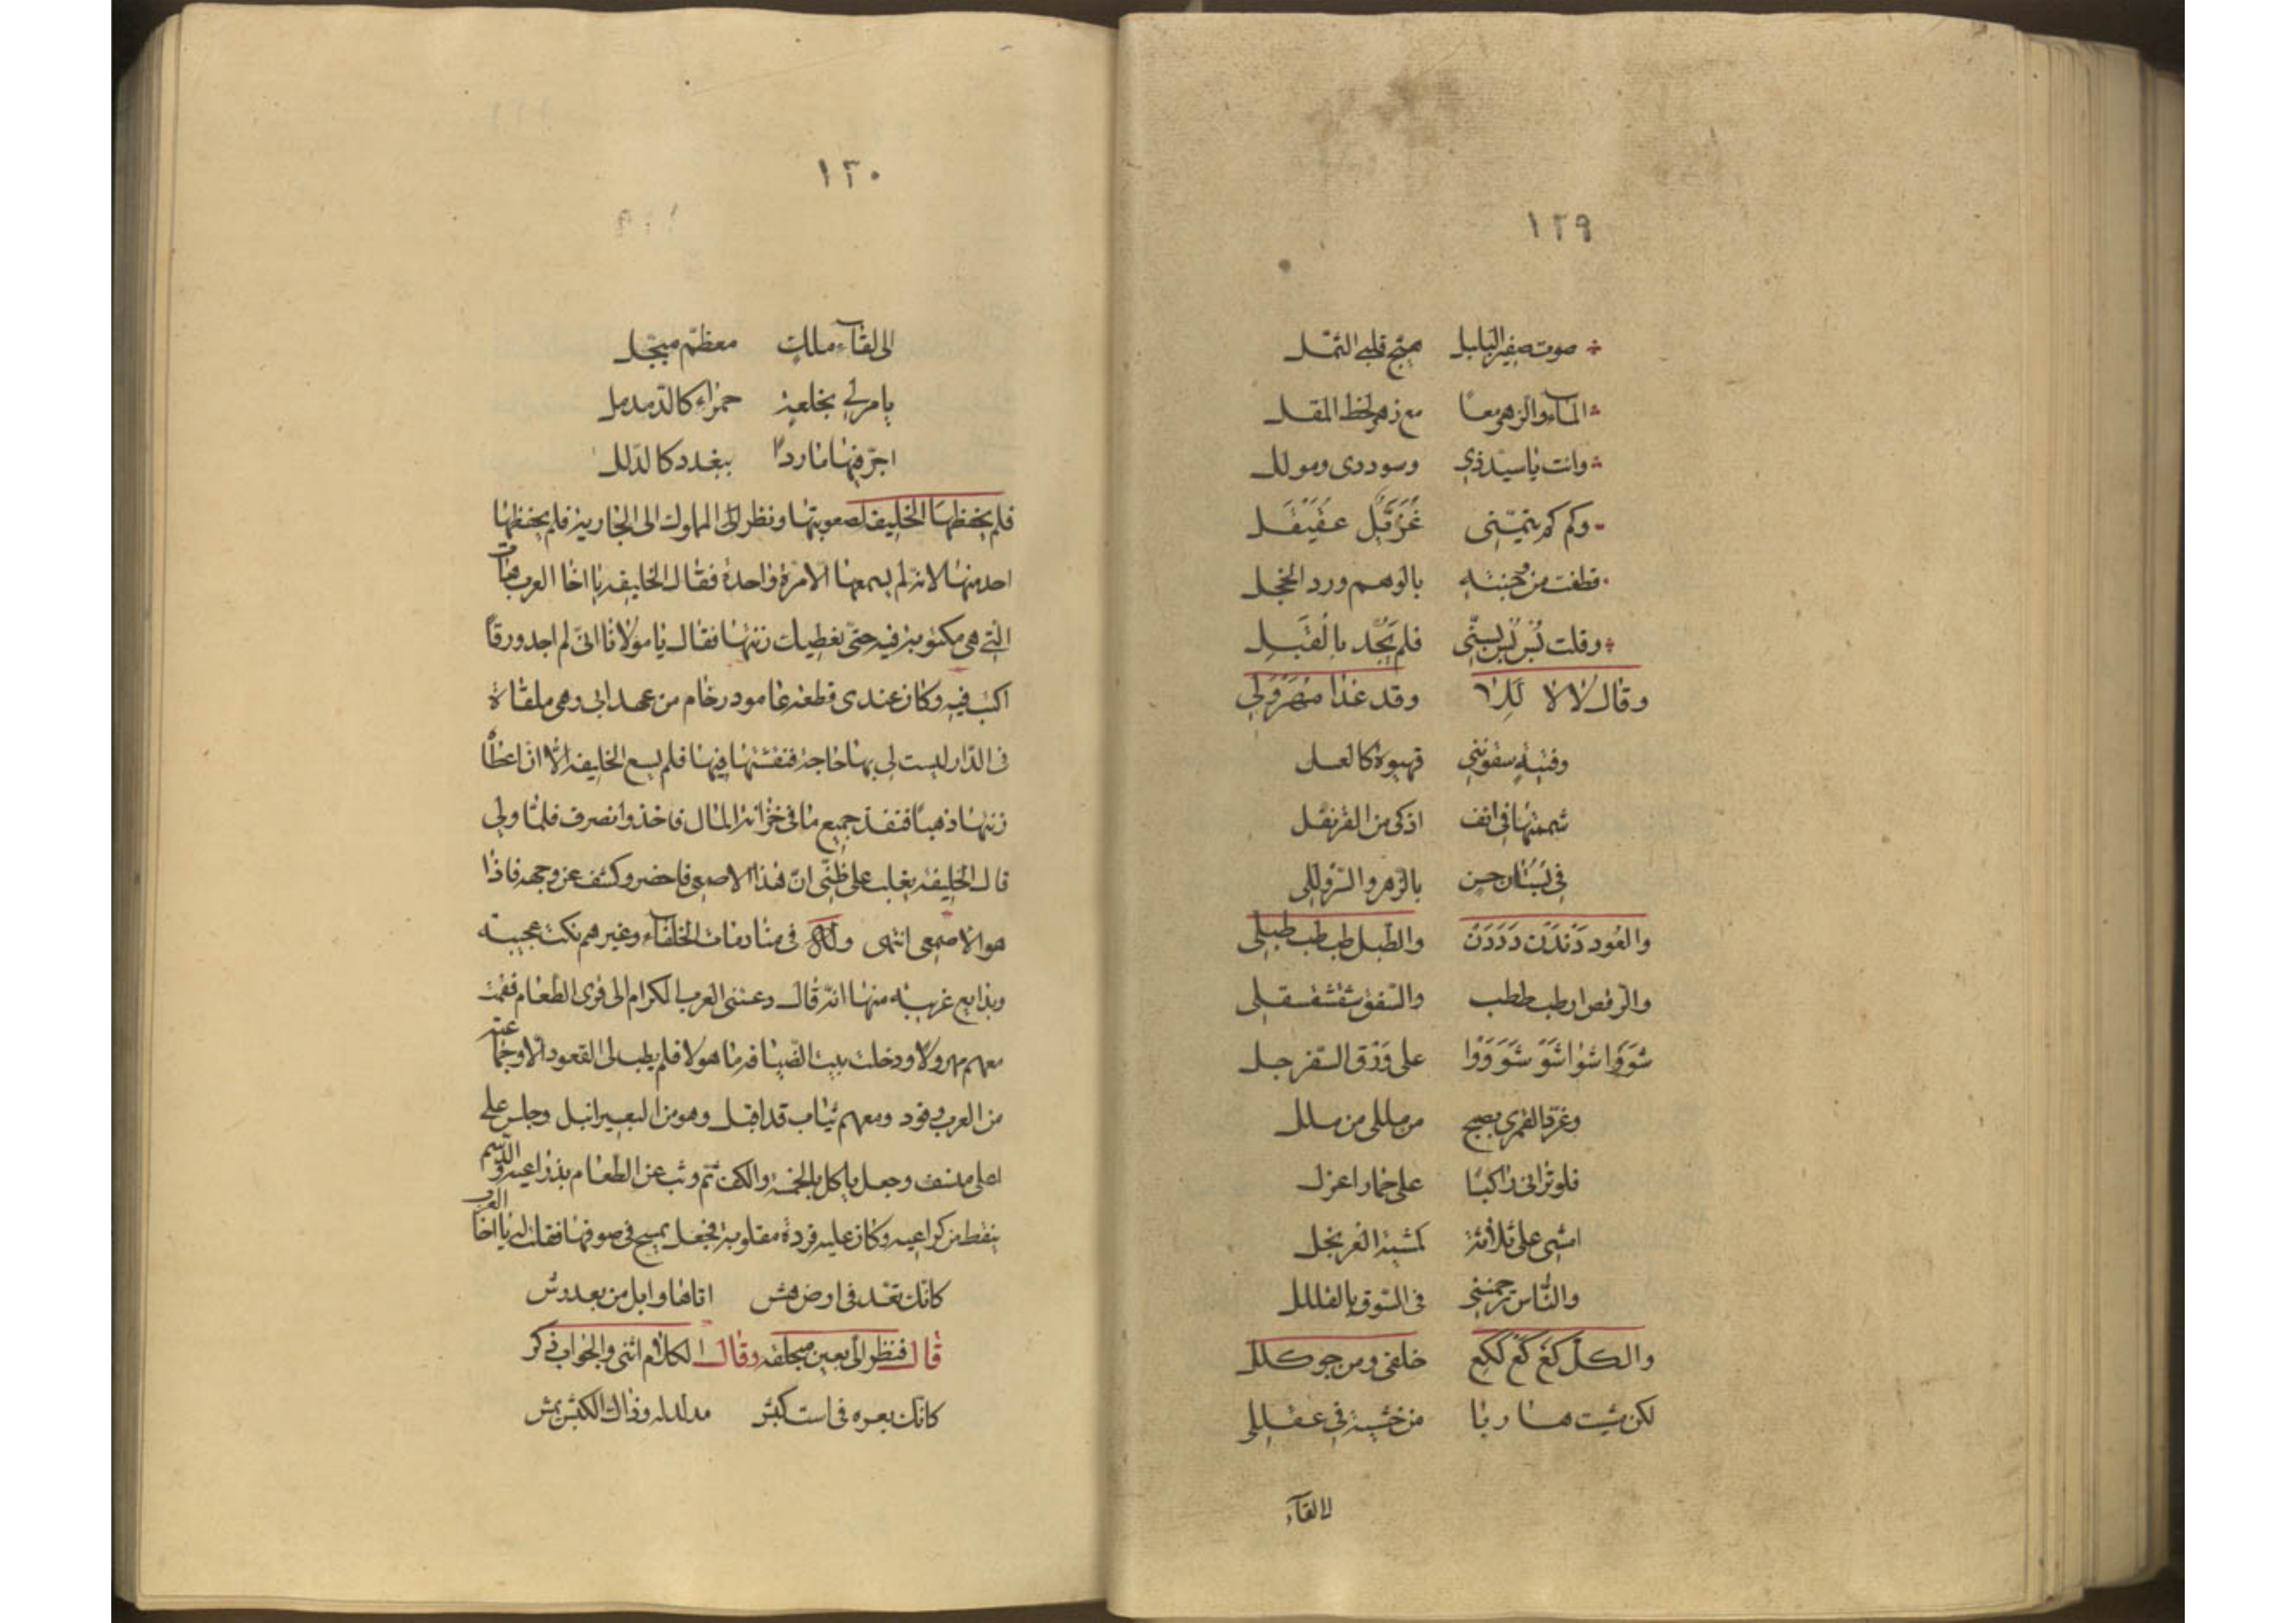 ١٢٩
صوت صفير البلبل هيّج قلبي الثمل
المآء والزهر معًا مع زهر لحظ المقل
وانت يا سيّد ذي وسوددى ومولل
وكم كم يتمّنى غُزَيِّل عقيقل
قطفت من وجنته بالوهم ورد الخجل
وقلت بُس بُس بسّنّى فلم يَجُد بالقُبَل
وقال لا لا للا وقد غدا مهرولي
وفتيةٍ سقوننى قهوة كالعسل
شممتها فى انف اذكى من القرنفل
فى بستان حسن بالزهر والسرولى
والعُود دَندَن دَدَدَن والطبل طب طب طبلى
والرقص ارطب طبطب والسقف سقسقسقلى
شَوَوا شوا شَوَ شَوَوَوا على وَرَق السفرجل
وغرّد القمرى يصيح من مللى من ملل
فلو ترانى راكبًا على حمار اعزل
امشى على ثلاثة كمشية العرنجل
والنّاس ترجمنى فى السّوق بالقلل
والكلّ كَع كَع لكع خلفى ومن حوكلل
لكن مشيت هاربا من خشية فى عقللى
الى لقآء
١٣٠
الى لقآء ملك معظّم مبجّل
يامر لي بخلعة حمراء كالدّمدمل
اجرّ فيها ماردًا ببغدد كالدّلل
فلم يحفظها الخليفه لصعوبتها ونظر الى المملوك الى الجارية فلم يحفظها
احد منها لانه لم يسمعها الا مرة واحدة فقال الخليفه يا اخا العرب هات
التي هى مكتوبة فيه حتّى نعطيك زنتها فقال يا مولانا انى لم اجد ورقًا
اكتب فيه وكان عندى قطعة عامود رخام من عهد ابى وهى ملقاة
فى الدّار ليست لى بها حاجة فنقشتها فيها فلم يسع الخليفه الّا ان اعطاه
زنتها ذهبًا فنفذ جميع ما فى خزانة المال فاخذ وانصرف فلمّا ولى
قال الخليفه يغلب على ظنّى ان هذا الاصمعى فاحضر وكشف عن وجهه فاذا
هو الاصمعى انتهى وله فى منادمات الخلفآء وغيرهم نكت عجيبة
وبدايع غريبه منها انه قال دعتنى العرب الكرام الى قرى الطعام فقمت
معهم مهرولًا ودخلت بيت الضيافه ماهولا فلم يطب لى القعود الا وجماعة
من العرب وفود ومعهم شاب قد اقبل وهو من البعير انبل وجلس على
اعلى منسف وجعل ياكل بالخمسة والكف ثم وثب عن الطعام بذراعيه والدّسم
ينقط من كراعيه وكان عليه فروة مقلوبة فجعل يمسح فى صوفها فقلت له يا اخا العرب
كانّك بقعة فى ارض هش اتاها وابل من بعد رش
قال فنظر الى بعين محلقه وقال الكلام انثى والجواب ذكر
كانك بعره فى است كبش مدلدله وذاك الكبش يمش